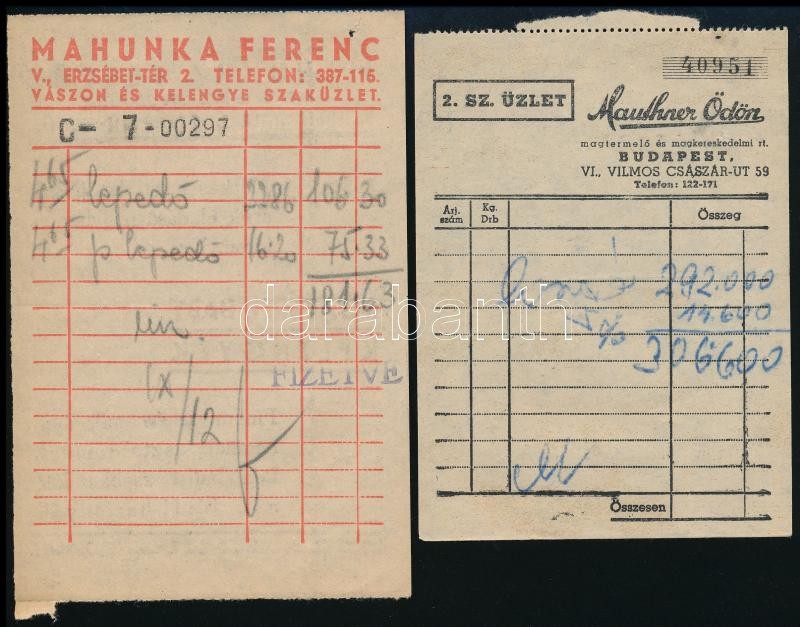 MAHUNKA FERENC
V., ERZSÉBET-TÉR 2. TELEFON: 387-115.
VÁSZON ÉS KELENGYE SZAKÜZLET.
C- 17-00297
4.65 lepedő 2286 106.30
4.65 p lepedő 16.20 75.33
181.63
IX/12
FIZETVE
40951
2. SZ. ÜZLET
Mauthner Ödön
magtermelő és magkereskedelmi rt.
BUDAPEST,
VI., VILMOS CSÁSZÁR-UT 59
Telefon: 122-171
Árj. szám Kg. Drb Összeg
292.000
5% 14.600
306.600
Összesen
darabanth